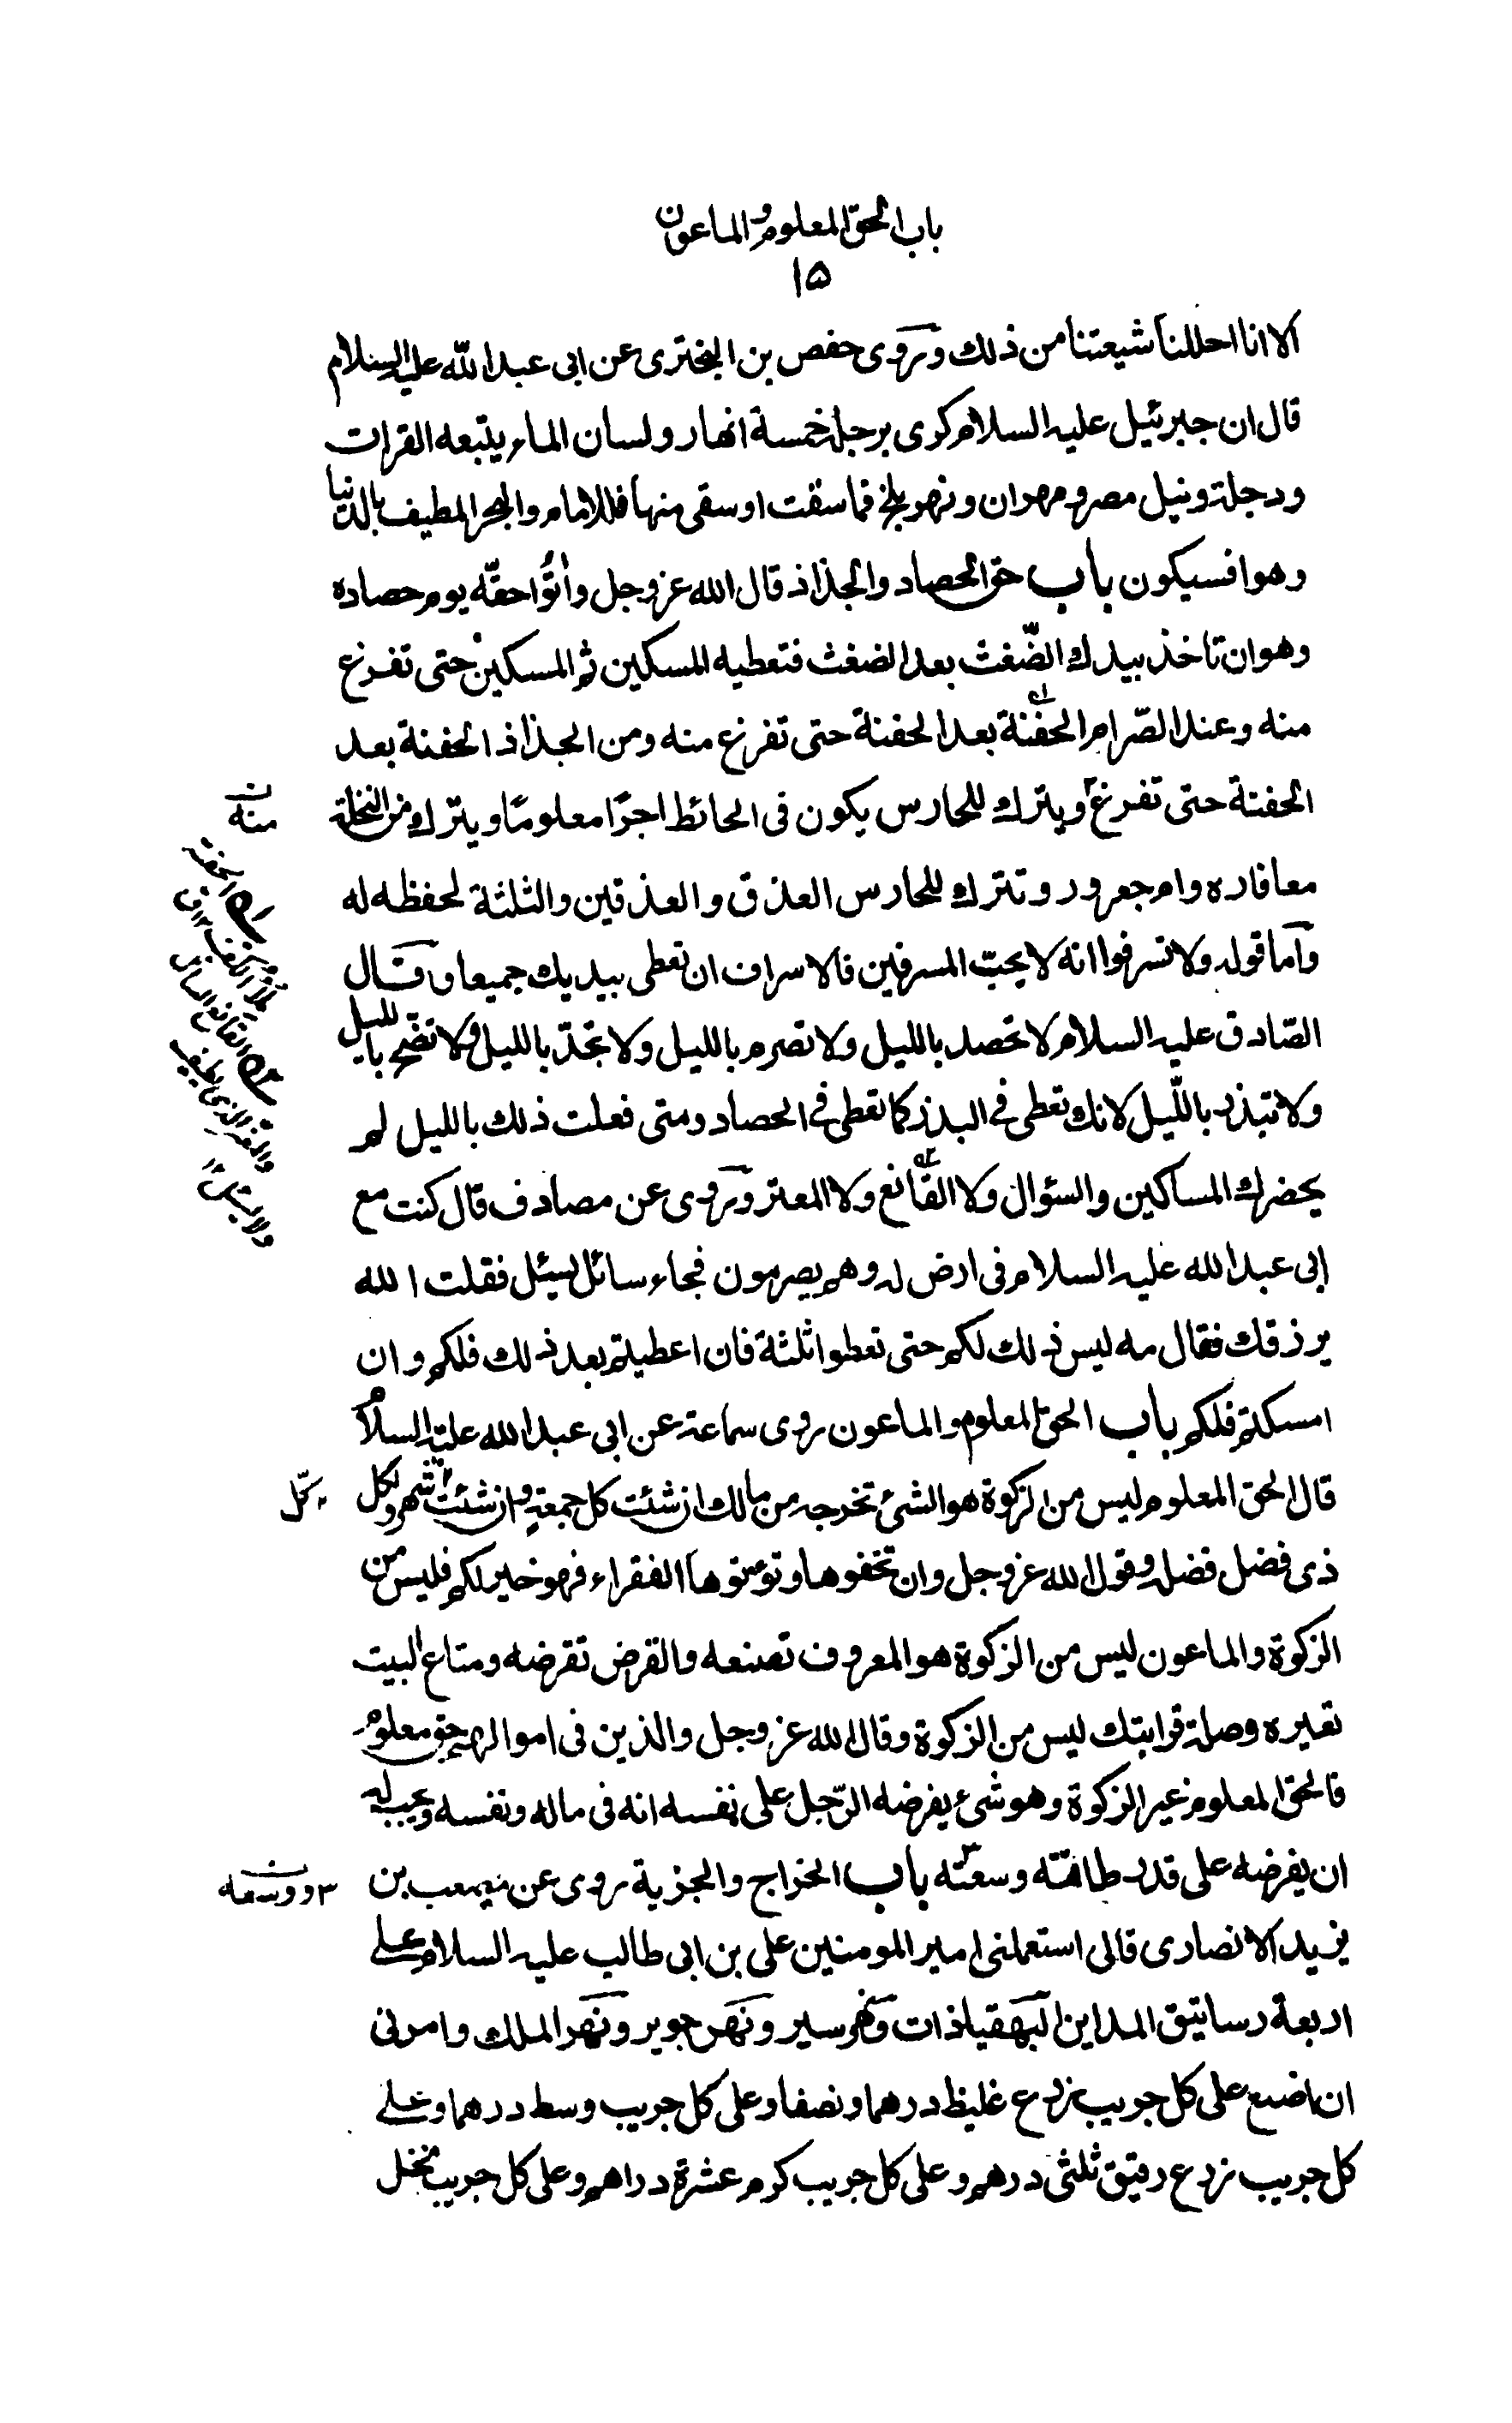 باب الحق المعلوم و الماعون
۱۵
الا انا احللنا شيعتنا من ذلك وروى حفص بن البخترى عن ابى عبد الله عليه السلام
قال ان جبرئيل عليه السلام كرى برجله خمسة انهار ولسان الماء يتبعه الفرات
ودجلة ونيل مصر و مهران ونهر بلخ فما سقت او سقى منها فللامام والبحر المطيف بالدنيا
وهو افسيكون باب حق الحصاد والجذاذ قال الله عز وجل وأتوا حقّه يوم حصاده
وهو ان تاخذ بيدك الضّغث بعد الضغث فتعطيه المسكين ثم المسكين حتى تفرغ
منه وعند الصّرام الحفنة بعد الحفنة حتى تفرغ منه ومن الجذاذ الحفنة بعد
الحفنة حتى تفرغ ويترك للحارس يكون فى الحائط اجرًا معلومًا ويترك من النخلة
منه
معافاره وام جعرور وتترك للحارس العذق والعذقين والثلثة لحفظه له
وآما قوله ولا تسرفوا انه لا يحبّ المسرفين فالاسراف ان تعطى بيديك جميعا وقال
الصّادق عليه السلام لا تحصد بالليل ولا تصرم بالليل ولا تجذّ بالليل ولا تضحّ بالليل
ولا تبذر بالليل لانك تعطى فى البذر كما تعطى فى الحصاد ومتى فعلت ذلك بالليل لم
يحضرك المساكين والسؤال ولا القانع ولا المعتر وروى عن مصادف قال كنت مع
ابى عبد الله عليه السلام فى ارض له وهم يصرمون فجاء سائل يسئل فقلت الله
يرزقك فقال مه ليس ذلك لكم حتى تعطوا ثلثة فان اعطيتم بعد ذلك فلكم وان
امسكتم فلكم باب الحق المعلوم والماعون روى سماعة عن ابى عبد الله عليه السلام
قال الحق المعلوم ليس من الزكوة هو الشئ تخرجه من مالك ان شئت كل جمعة وان شئت شهر ولكل
كلّ
ذى فضل فضله وقول الله عز وجل وان تخفوها وتؤتوها الفقراء فهو خير لكم فليس من
الزكوة والماعون ليس من الزكوة هو المعروف تصنعه والقرض تقرضه ومتاع البيت
تعيره وصلة قرابتك ليس من الزكوة وقال الله عز وجل والذين فى اموالهم حق معلوم
فالحق المعلوم غير الزكوة وهو شئ يفرضه الرّجل على نفسه انه فى ماله ونفسه ويجب له
ان يفرضه على قدر طاقته وسعته باب الخراج والجزية روى عن مصعب بن
ووسعه
يزيد الانصارى قال استعملنى امير المومنين على بن ابى طالب عليه السلام على
اربعة رساتيق المداين البهقياذات ونهر سير ونهر جوير ونهر الملك وامرنى
ان اضع على كل جريب زرع غليظ درهما ونصفا وعلى كل جريب وسط درهما وعلى
كل جريب زرع رقيق ثلثى درهم وعلى كل جريب كرم عشرة دراهم وعلى كل جريب نخل